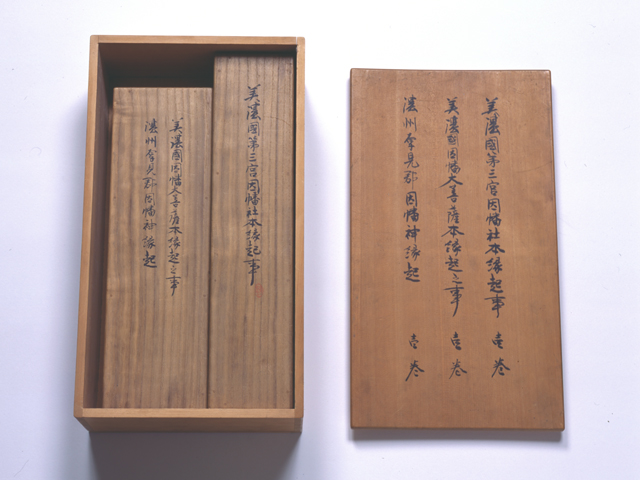 美濃國第三宮因幡社本縁起事
美濃國因幡大菩薩本縁起之事
濃州厚見郡因幡神縁起
美濃國第三宮因幡社本縁起事 壱巻
美濃國因幡大菩薩本縁起之事 壱巻
濃州厚見郡因幡神縁起 壱巻